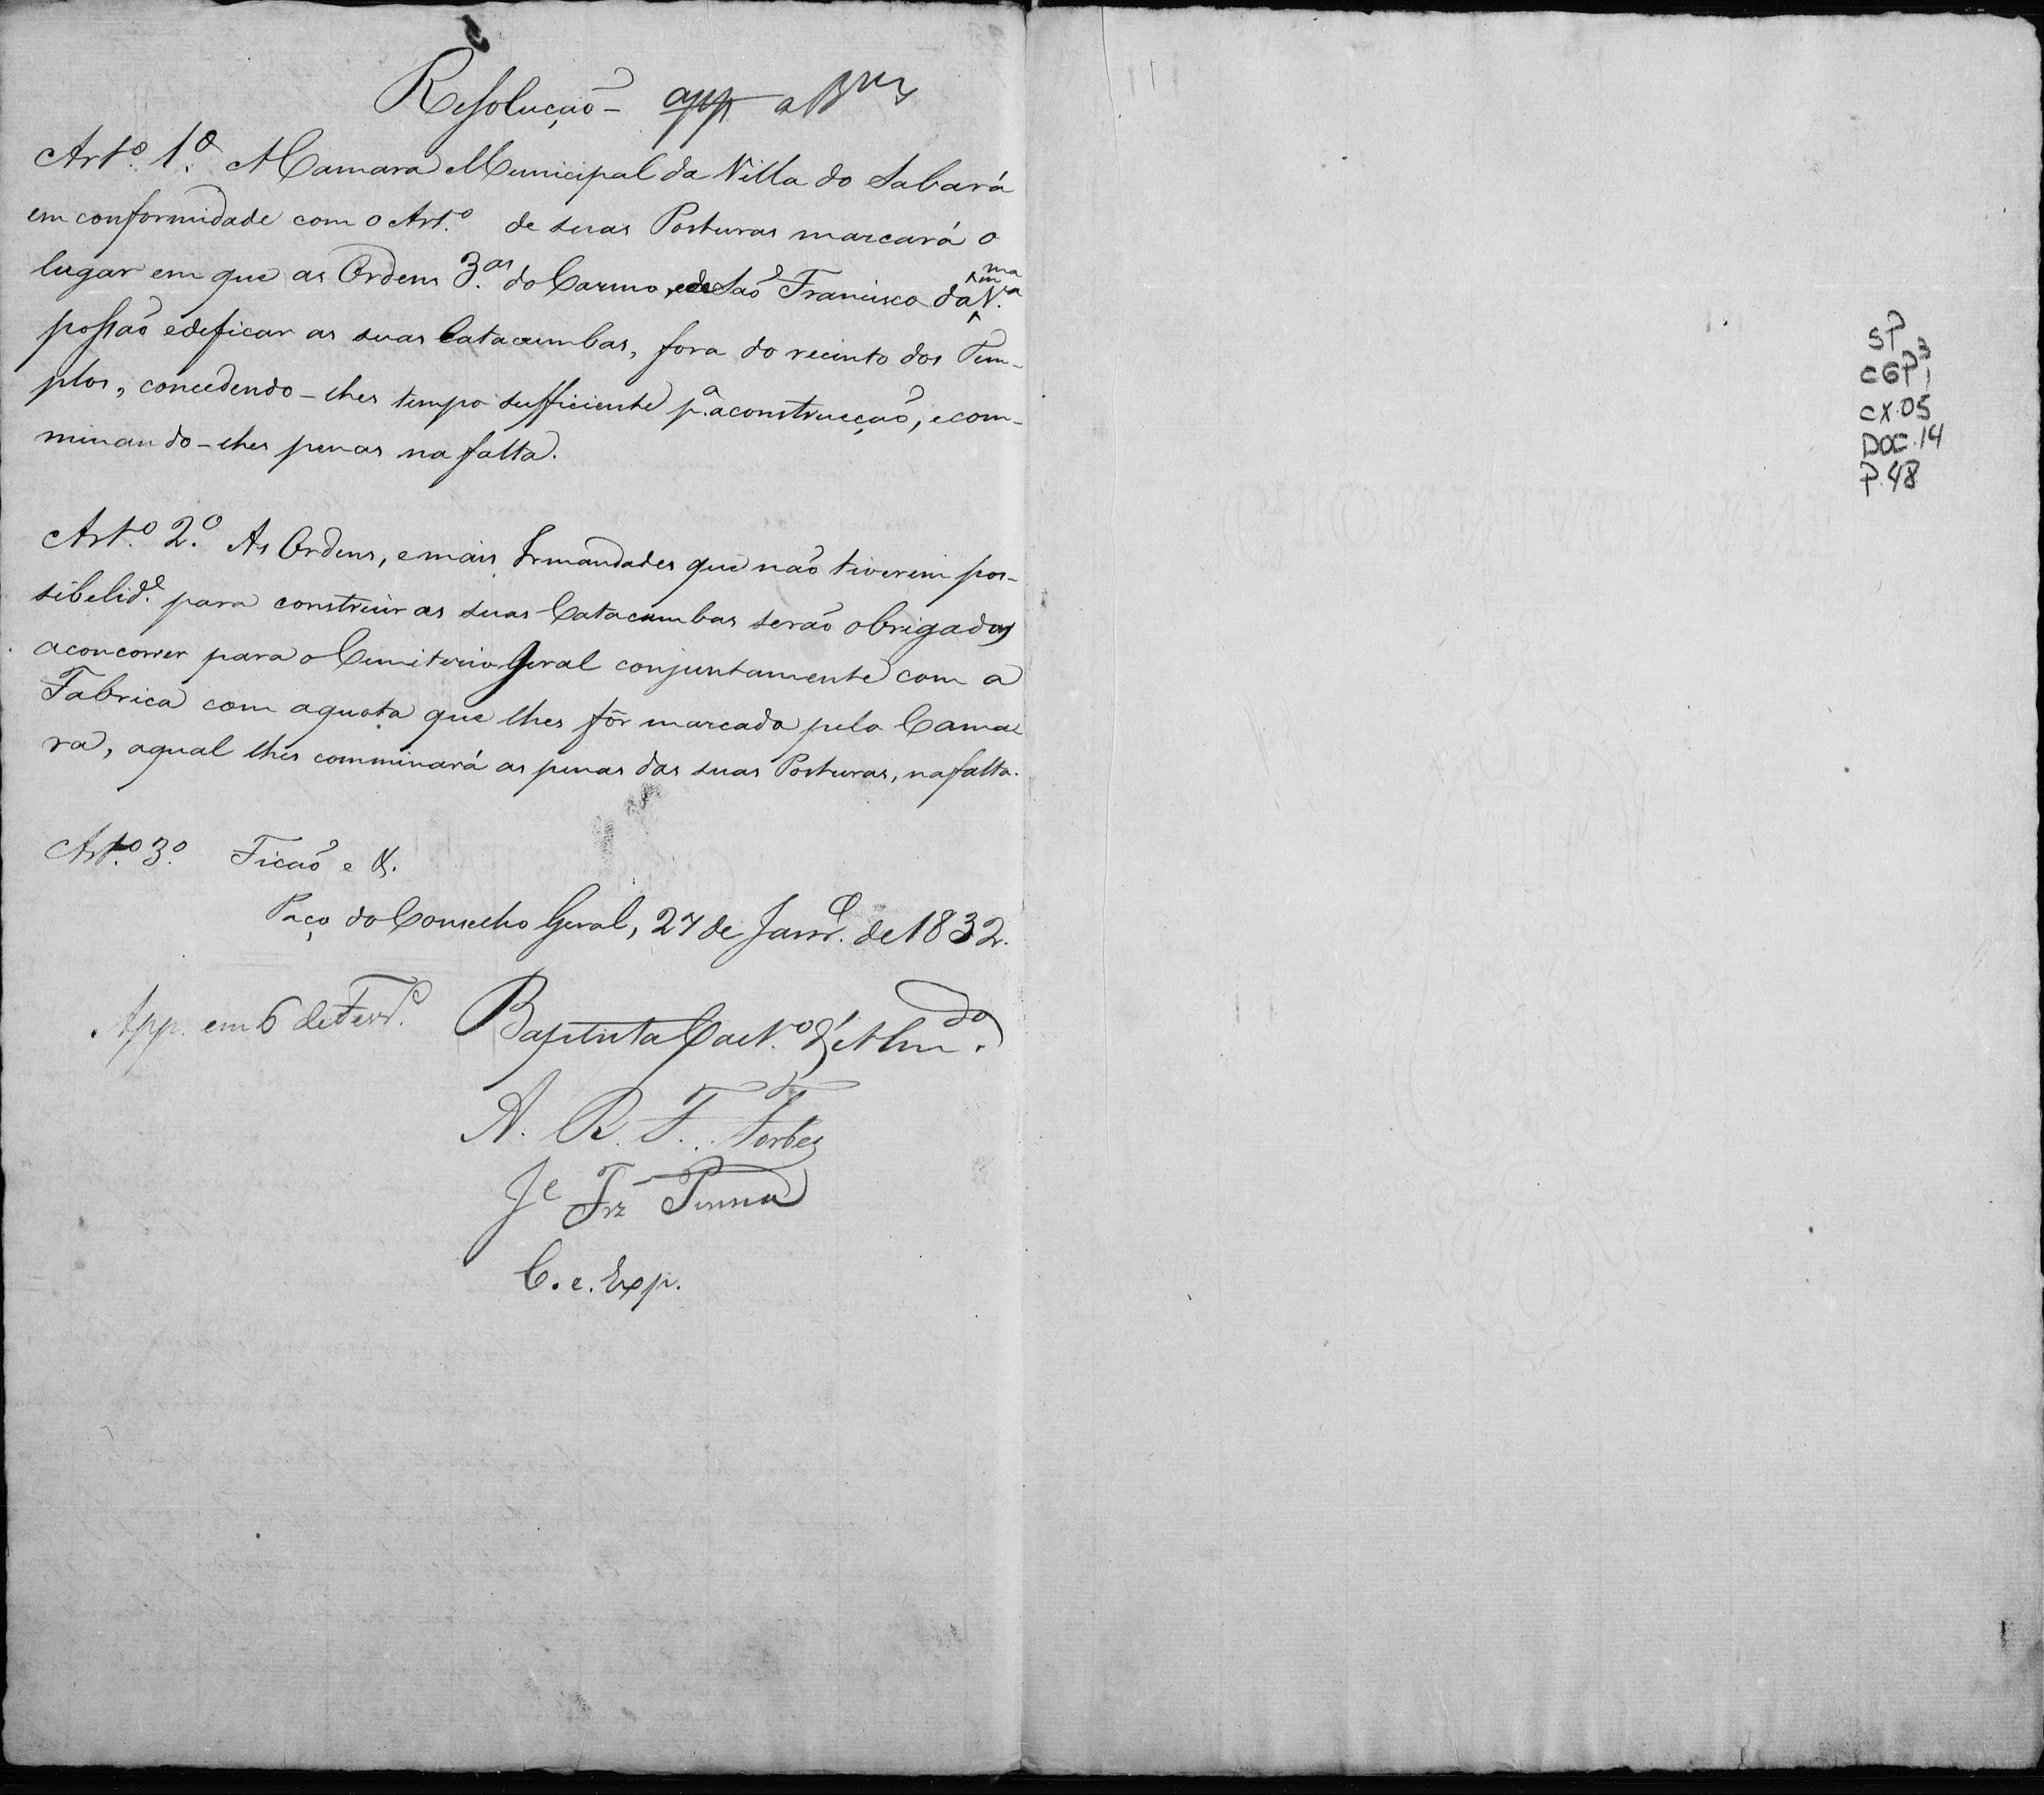 Resolução - app
Art.º 1.º A Camara Municipal da Villa do Sabará
em conformidade com o Art.º de suas Posturas marcará o
lugar em que as Ordens 3.as do Carmo, e de São Francisco da mma V.a
possão edeficar as suas Catacumbas, fora do recinto dos Tem-
plos, concedendo-lhes tempo sufficiente p.a a construcção, e com-
minando-lhes penas na falta.
Art.º 2.º As Ordens, e mais Irmandades que não tiverem pos-
sibelid.e para construir as suas Catacumbas serão obrigadas
a concorrer para o Cemiterio Geral conjuntamente com a
Fabrica com a quota que lhes fôr marcada pela Cama
ra, a qual lhes comminará as penas das suas Posturas, na falta.
Art.º 3.º Ficão e &.
Paço do Conselho Geral, 27 de Janr.o de 1832.
App. em 6 de Fevr.o Baptista Caet.º d'Alm.do
A. R. F. Forbes
Je Frz Penna
C. e. Exp.
SP
CGP 3
CX.05
DOC.14
P.48